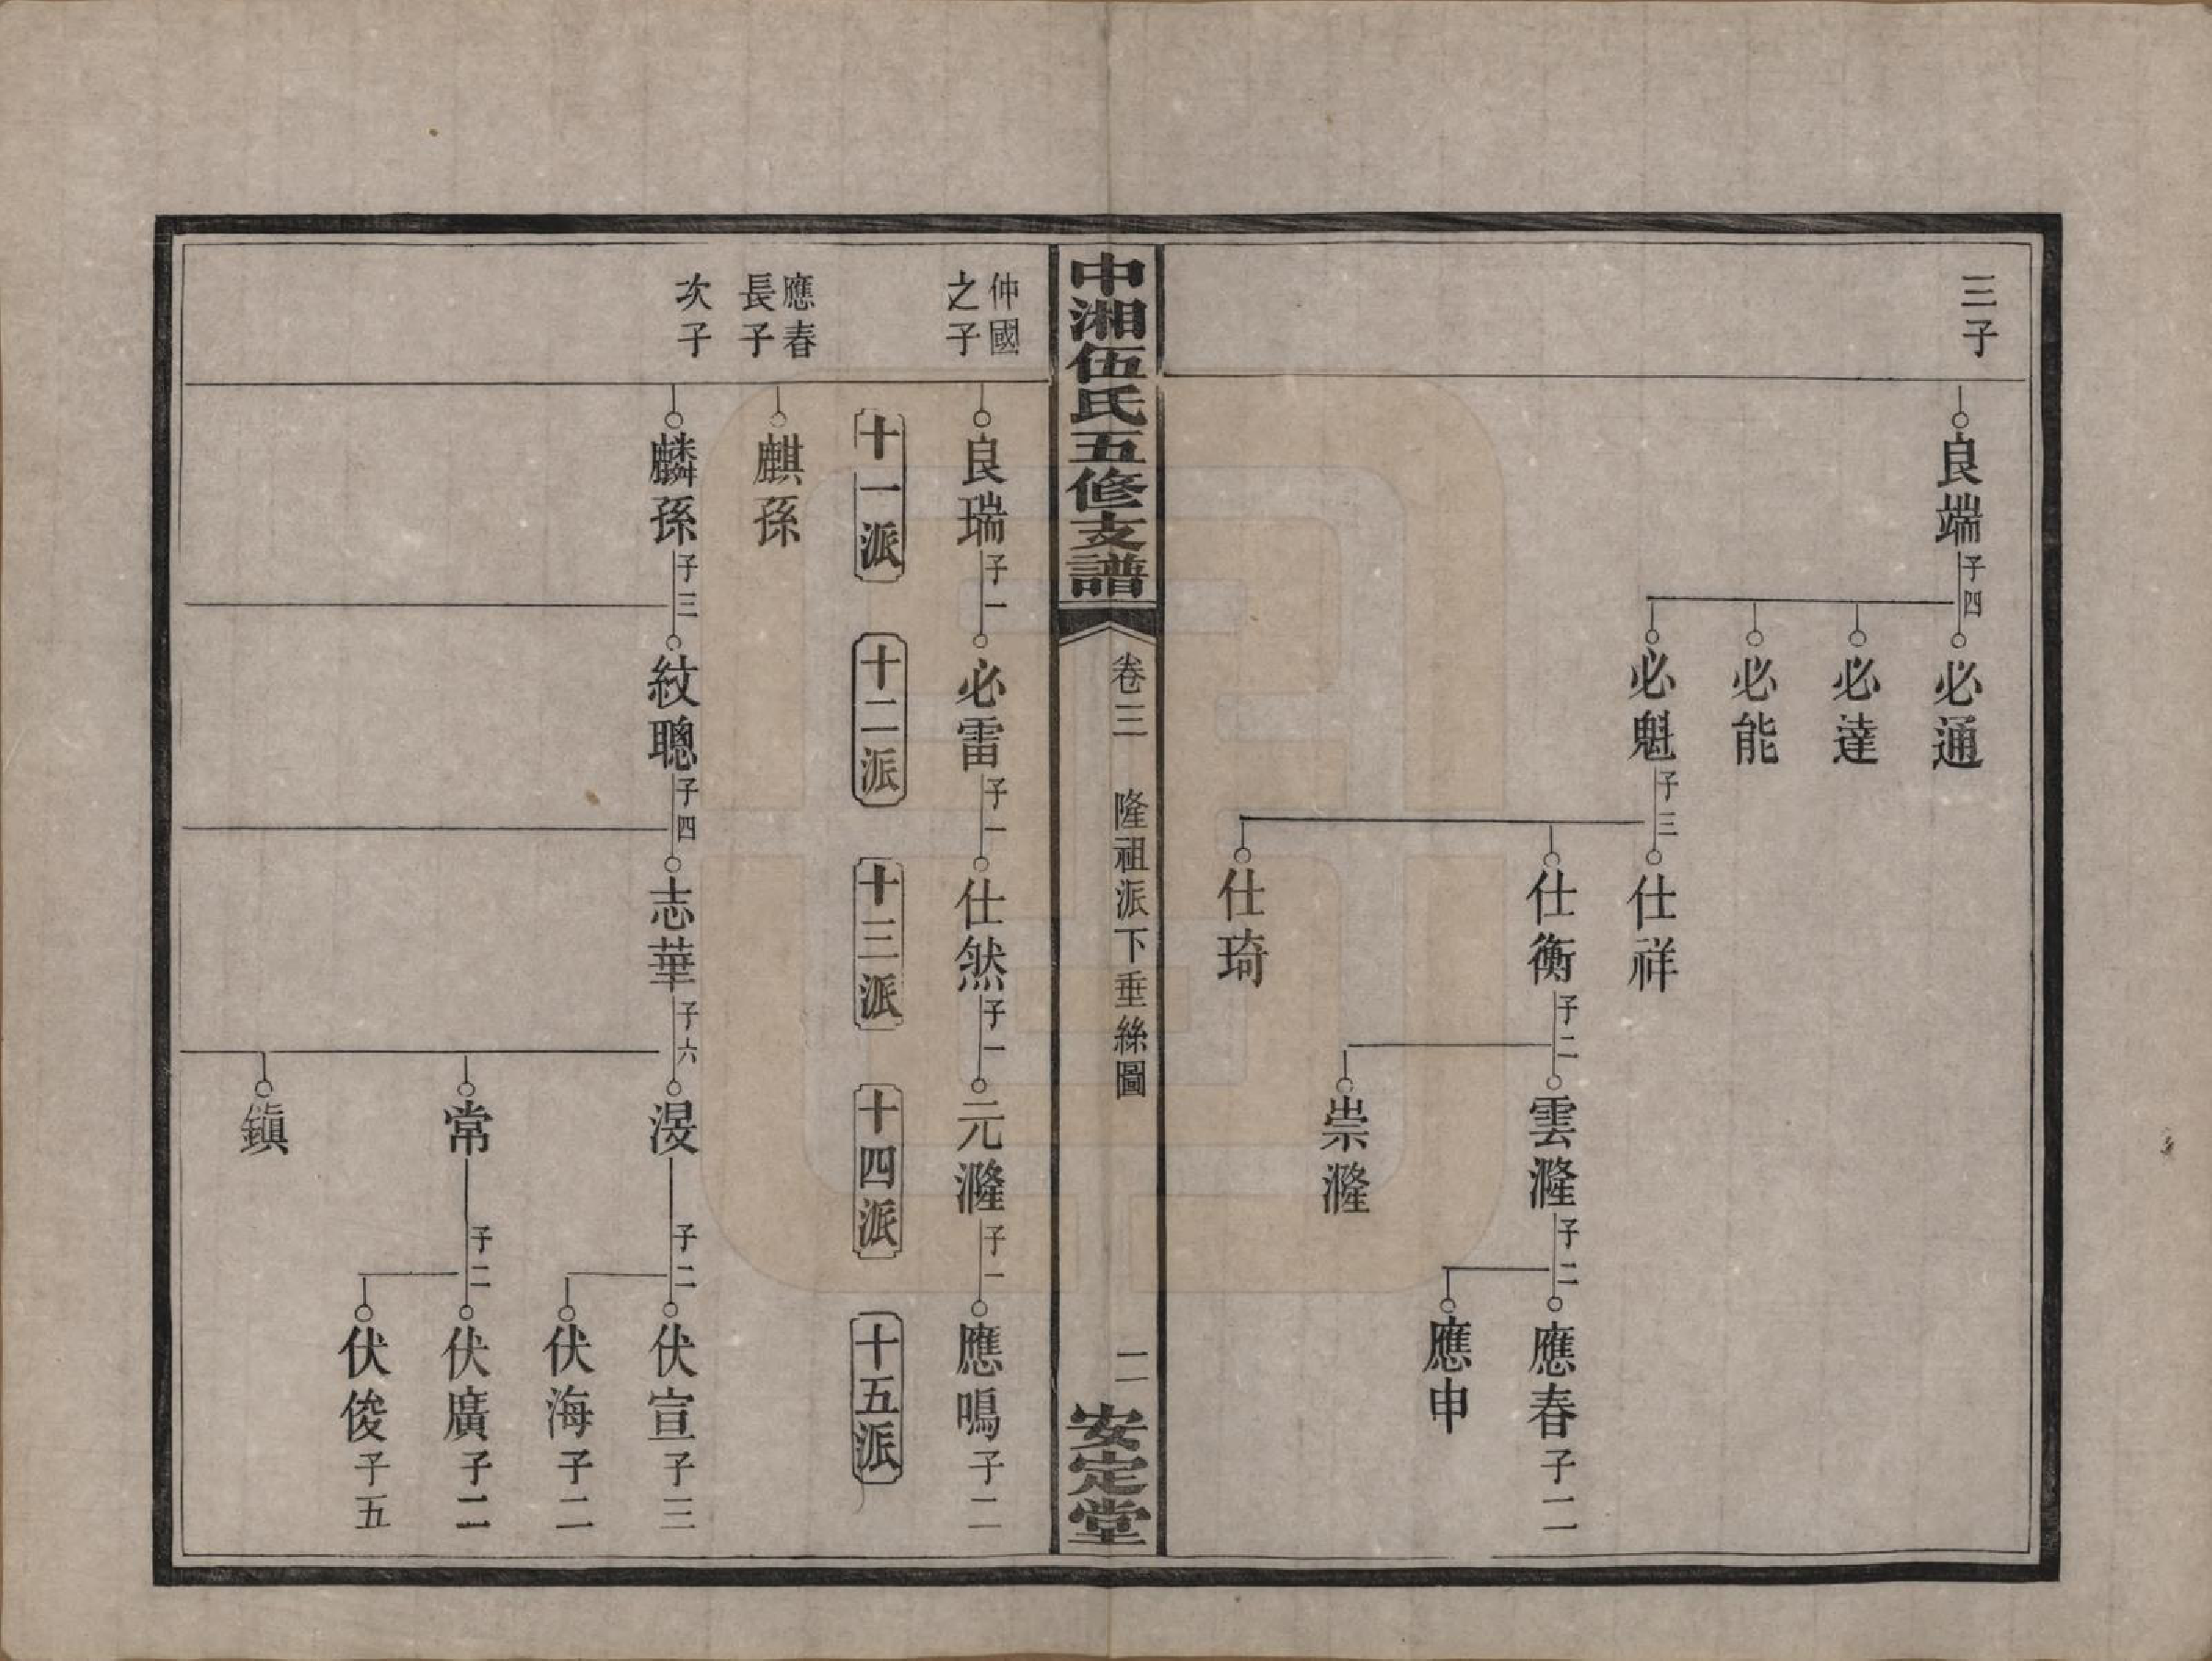 三子
良端 子四
必通
必達
必能
必魁 子三
仕祥
仕衡 子二
仕琦
雲漋 子二
崇漋
應春 子二
應申
中湘伍氏五修支譜
卷三 隆祖派下垂絲圖
二
安定堂
仲國
之子
良瑞 子一
必雷 子一
仕然 子一
元漋 子一
應鳴 子二
十一派
十二派
十三派
十四派
十五派
應春
長子
麒孫
次子
麟孫 子三
紋聰 子四
志華 子六
子二
伏宣 子三
伏海 子二
常 子二
伏廣 子二
伏俊 子五
鎮